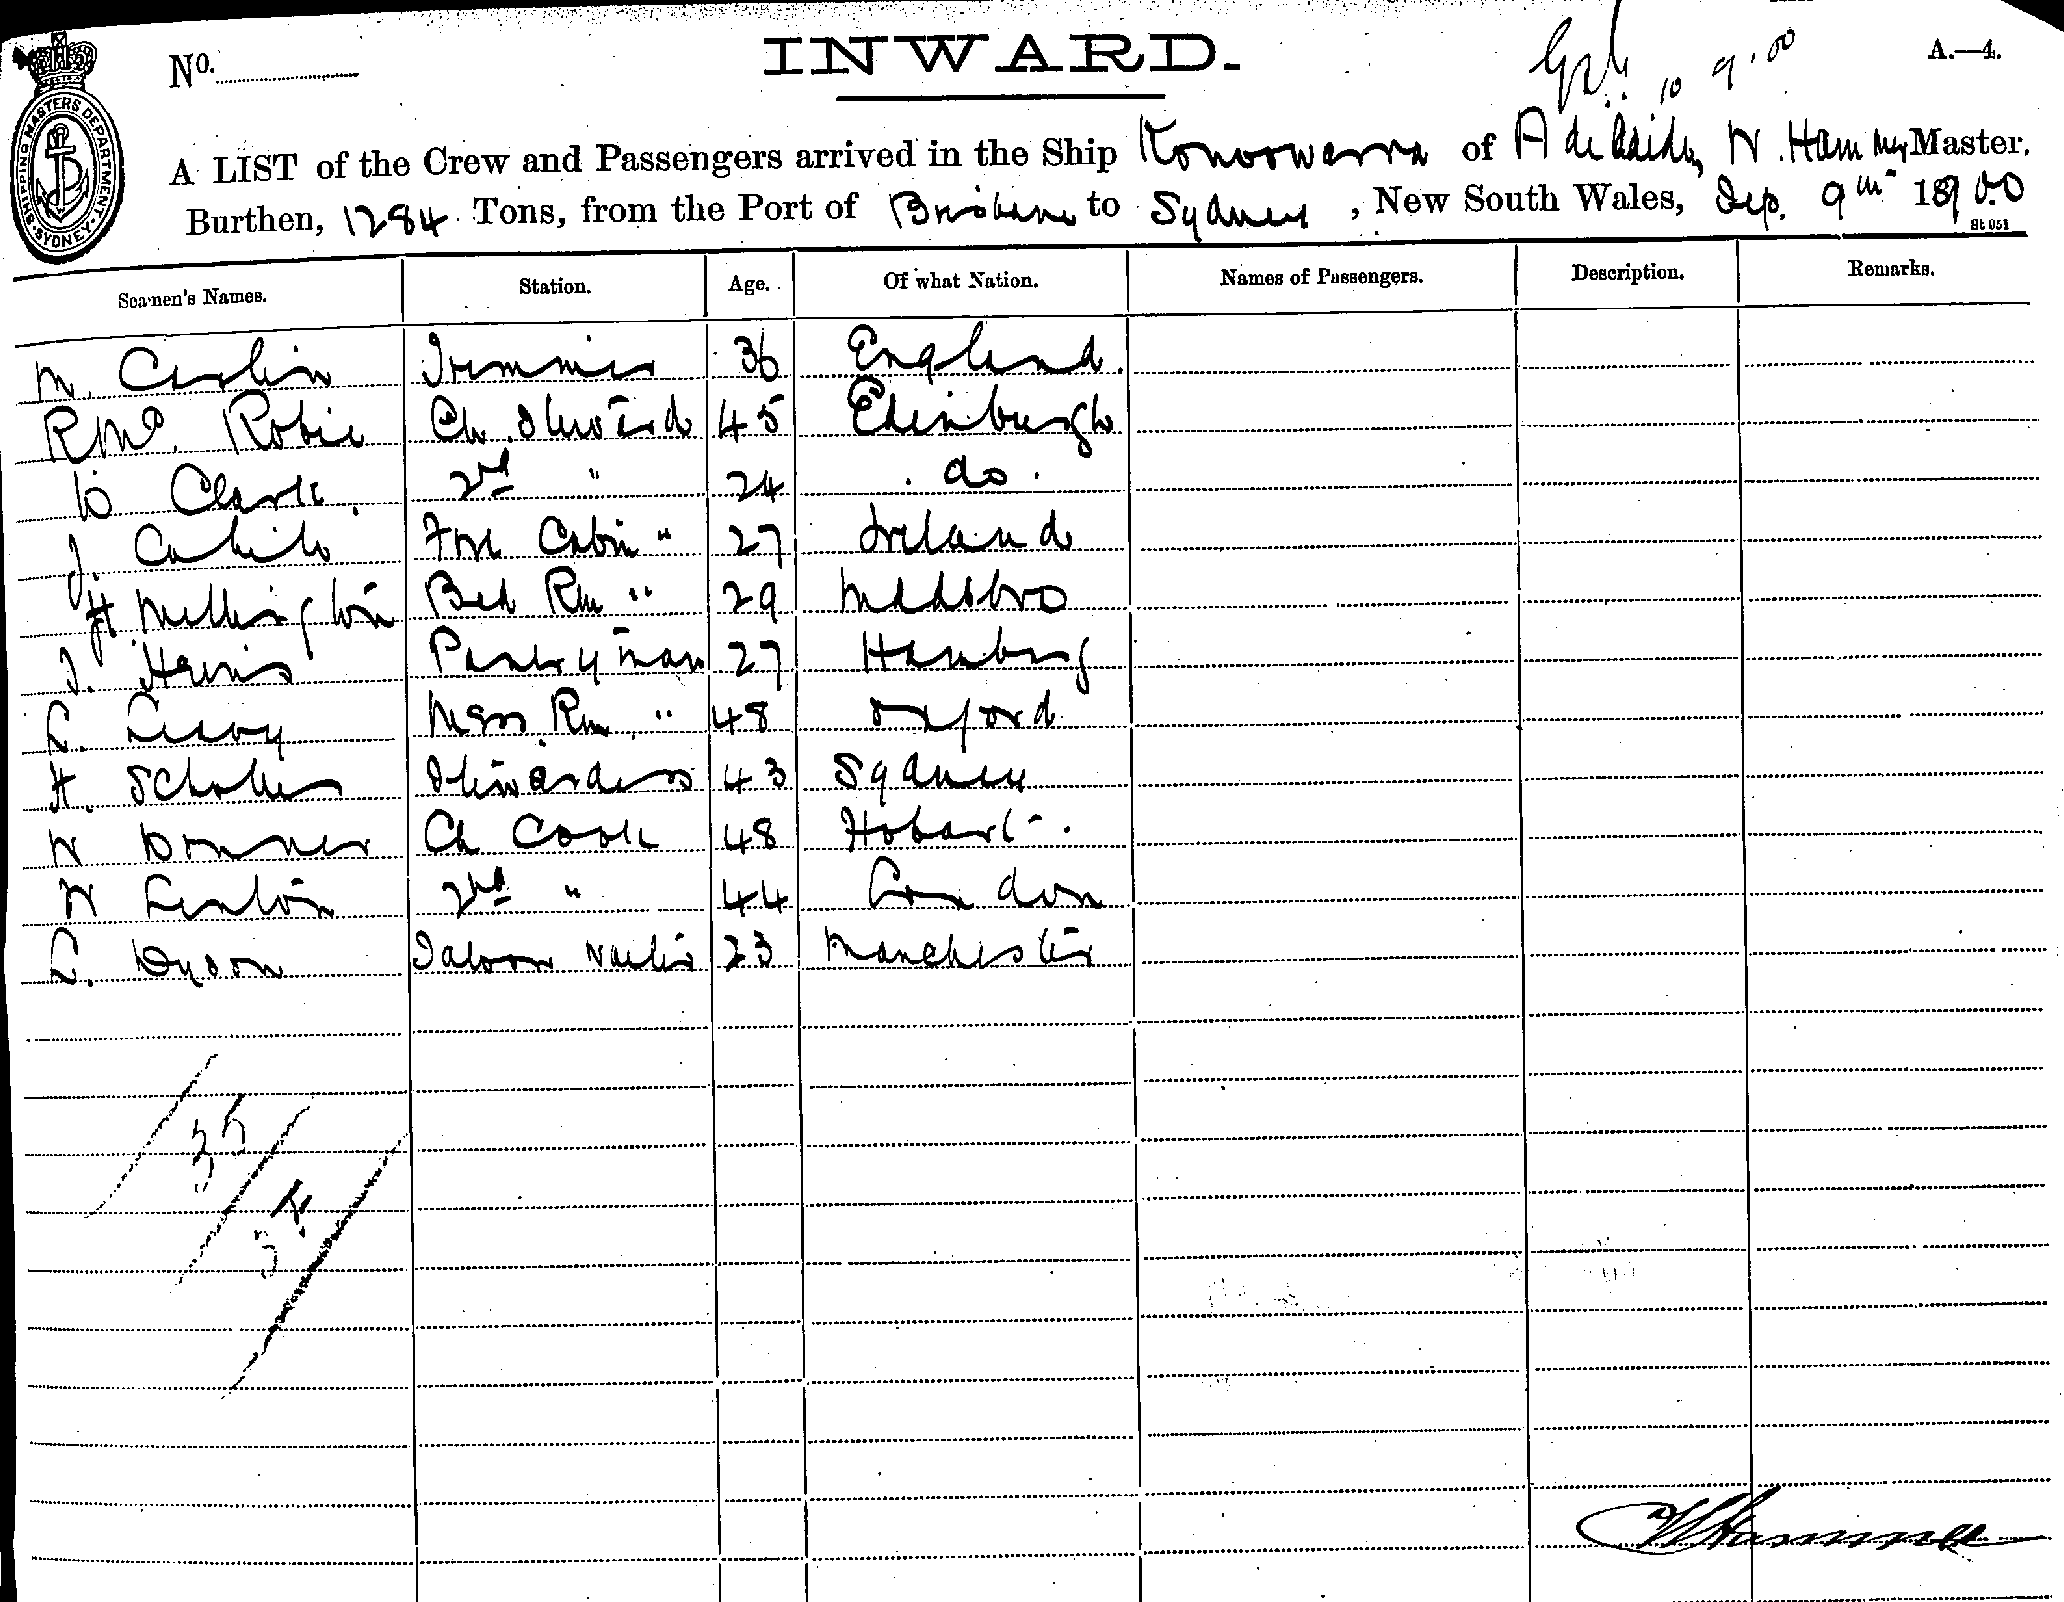 INWARD.
No.
A.—4.
10 9.00
SHIPPING MASTERS DEPARTMENT. SYDNEY.
A LIST of the Crew and Passengers arrived in the Ship Konoowarra of Adelaide, W. Hammer Master,
Burthen, 1284 Tons, from the Port of Brisbane to Sydney, New South Wales, Sep. 9th 1900
St 051
Seamen's Names. Station. Age. Of what Nation. Names of Passengers. Description. Remarks.
M. Carlin Trimmer 36 England.
R Mc. Robie Ch. Steward 45 Edinburgh
D Clark. 2nd " 24 do.
J. Cahill Fore Cabin " 27 Ireland
H Mellington Bed Rm " 29 Mddsbro
J. Harris Pantryman 27 Hamburg
L. Leavy Mess Rm " 48 Oxford
H. Scholes Stewardess 43 Sydney
W Donner Ch Cook 48 Hobart.
W Lenton 2nd " 44 London
L. Dyson Saloon Waiter 23 Manchester
35